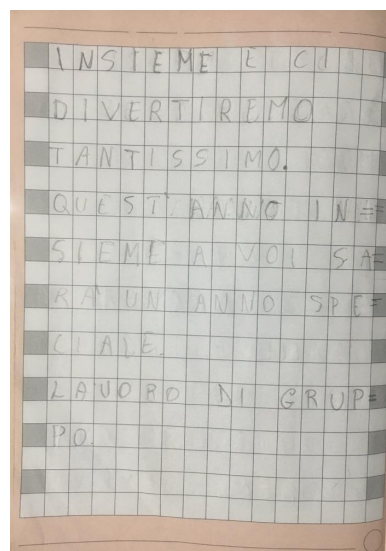 INSIEME E CI
DIVERTIREMO
TANTISSIMO.
QUEST'ANNO IN=
SIEME A VOI SA=
RA' UN ANNO SPE=
CIALE.
LAVORO DI GRUP=
PO.